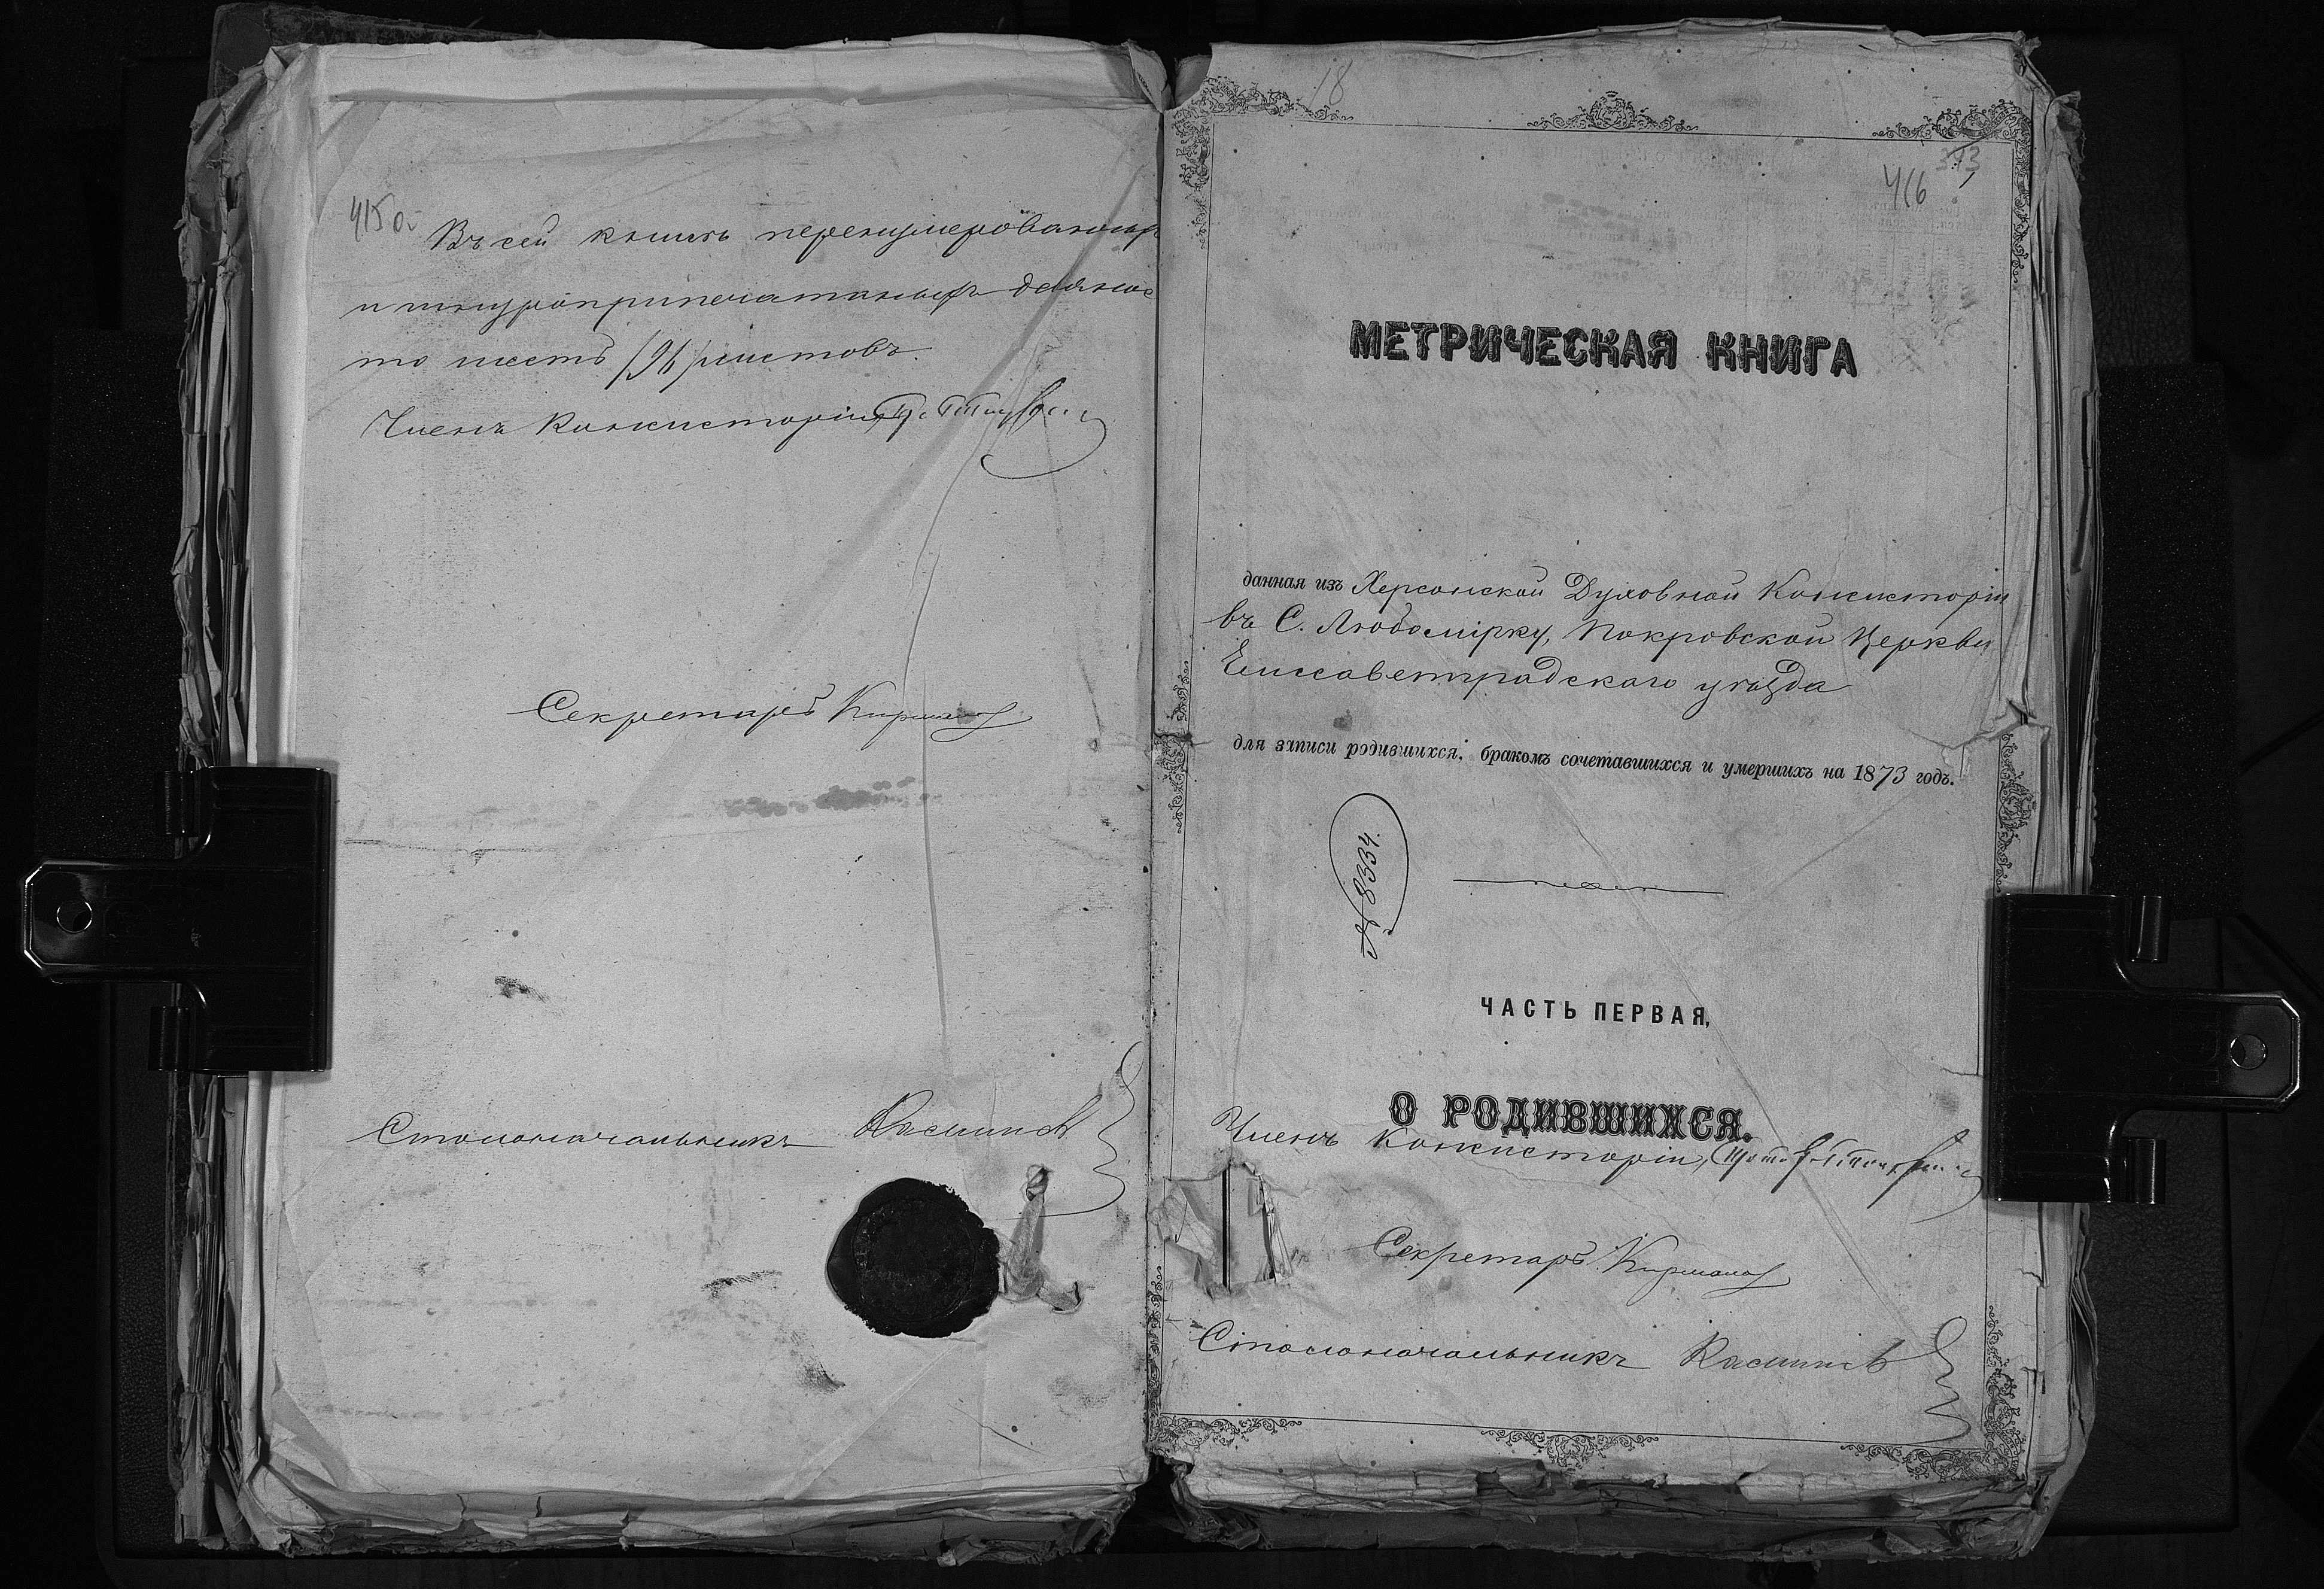 415 об
Въ сей книгѣ перенумерованныхъ
и шнуроприпечатанныхъ девяно
то шесть /96/ листовъ.
Членъ Консисторіи,
Секретарь
Столоначальникъ
18
313
416
МЕТРИЧЕСКАЯ КНИГА
данная изъ Херсонской Духовной Консисторіи
въ С. Любомірку, Покровской Церкви
Елисаветградскаго уѣзда
для записи родившихся, бракомъ сочетавшихся и умершихъ на 1873 годъ.
№ 8334.
ЧАСТЬ ПЕРВАЯ,
О РОДИВШИХСЯ.
Членъ Консисторіи, Прот.
Секретарь
Столоначальникъ